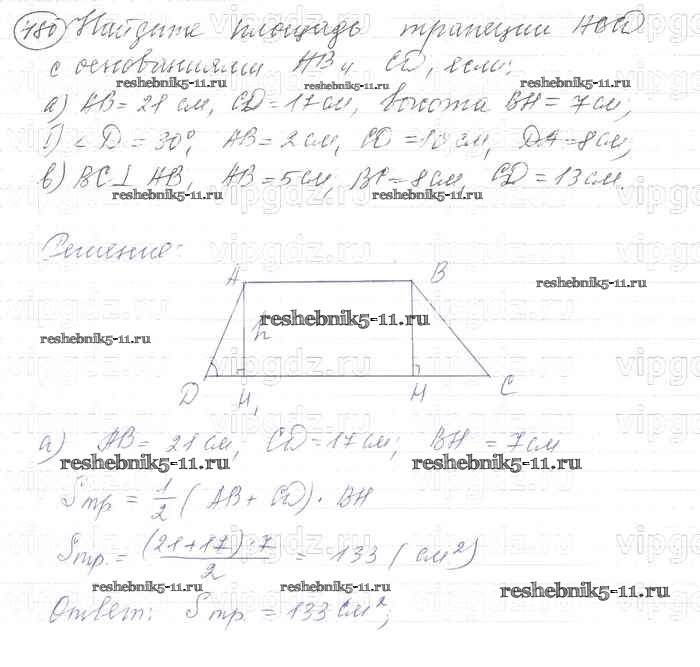 480 Найдите площадь трапеции ABCD
с основаниями AB и CD, если:
reshebnik5-11.ru reshebnik5-11.ru reshebnik5-11.ru
а) AB = 21 см, CD = 17 см, высота BH = 7 см;
б) ∠D = 30°, AB = 2 см, CD = 10 см, DA = 8 см,
в) BC ⊥ AB, AB = 5 см, BC = 8 см, CD = 13 см.
reshebnik5-11.ru reshebnik5-11.ru
vipgdz.ru
Решение:
A B
reshebnik5-11.ru
h reshebnik5-11.ru
reshebnik5-11.ru
D H₁ H C
а) AB = 21 см, CD = 17 см; BH = 7 см
reshebnik5-11.ru reshebnik5-11.ru
Sтр = 1/2 (AB + CD) · BH
Sтр. = (21+17)·7/2 = 133 (см²)
reshebnik5-11.ru reshebnik5-11.ru reshebnik5-11.ru
Ответ: Sтр = 133 см²;